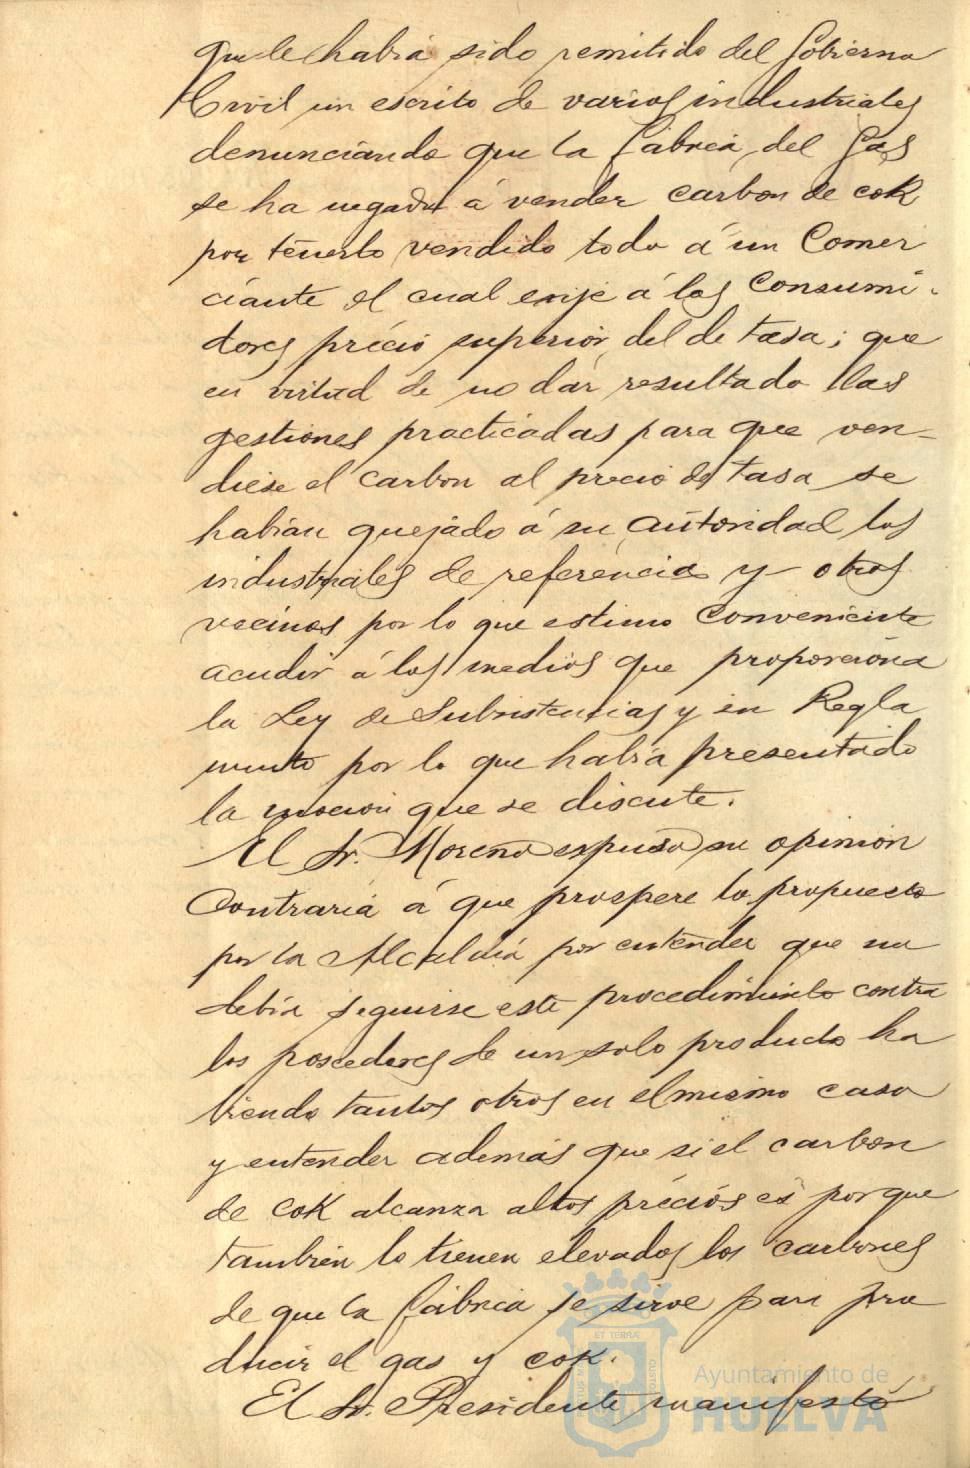 que le habia sido remitido del Gobierno
Civil un escrito de varios industriales
denunciando que la fábrica del Gas
se ha negado á vender carbon de cok
por tenerlo vendido todo á un Comer
ciante el cual exije á los Consumi-
dores précio superior del de tasa; que
en virtud de no dár resultado las
gestiones practicadas para que ven-
diese el carbon al precio de tasa se
habian quejado á su autoridad los
industriales de referencia y otros
vecinos por lo que estimo Conveniente
acudir á los medios que proporciona
la Ley de Subsistencias y su Regla
mento por lo que habia presentado
la mocion que se discute.
El Sr. Moreno expuso su opinion
Contraria á que prospere lo propuesto
por la Alcaldia por entender que no
debia seguirse este procedimiento contra
los poseedores de un solo producto ha
biendo tantos otros en el mismo caso
y entender además que si el carbon
de cok alcanza altos précios es porque
tambien lo tienen elevados los carbones
de que la fábrica se sirve para pro
ducir el gas y cok.
El Sr. Presidente manifestó
ET TERRÆ
Ayuntamiento de
HUELVA